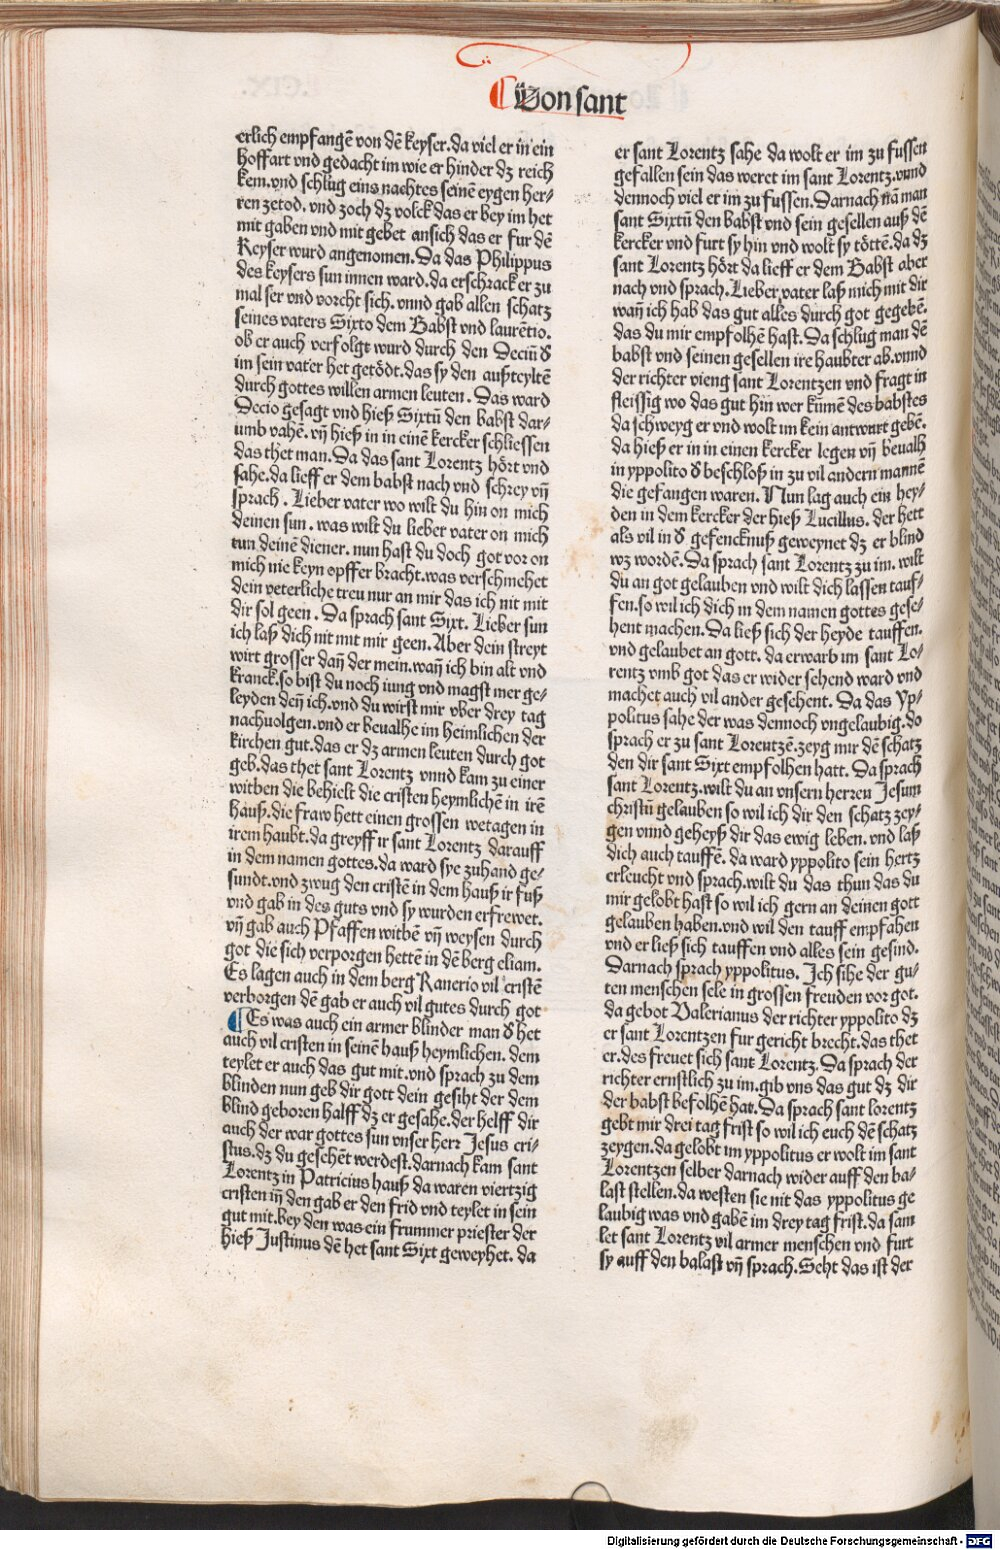 Von sant
erlich empfangē von dē keyser.da viel er in ein
hoffart vnd gedacht im wie er hinder dz reich
kem.vnd schlug eins nachtes seinē eygen her-
ren zetod. vnd zoch dz volck das er bey im het
mit gaben vnd mit gebet ansich das er fur dē
Keyser wurd angenomen.Da das Philippus
des keysers sun innen ward.da erschrack er zu
mal ser vnd vorcht sich. vnnd gab allen schatz
seines vaters Sixto dem Babst vnd laurētio.
ob er auch verfolgt wurd durch den Deciū d̕
im sein vater het getödt.das sy den außteyltē
durch gottes willen armen leuten. Das ward
Decio gesagt vnd hieß Sixtū den babst dar-
umb vahē. vn̄ hieß in in einē kercker schliessen
das thet man.Da das sant Lorentz hört vnd
sahe.da lieff er dem babst nach vnd schrey vn̄
sprach. Lieber vater wo wilt du hin on mich
deinen sun. was wilt du lieber vater on mich
tun deinē diener. nun hast du doch got vor on
mich nie keyn opffer bracht.was verschmehet
dein veterliche treu nur an mir das ich nit mit
dir sol geen. Da sprach sant Sixt. Lieber sun
ich laß dich nit mit mir geen.Aber dein streyt
wirt grosser dan̄ der mein.wan̄ ich bin alt vnd
kranck.so bist du noch iung vnd magst mer ge-
leyden den̄ ich.vnd du wirst mir vber drey tag
nachuolgen.vnd er beualhe im heimlichen der
kirchen gut.das er dz armen leuten durch got
geb.das thet sant Lorentz vnnd kam zu einer
witben die behielt die cristen heymlichē in irē
hauß.die fraw hett einen grossen wetagen in
irem haubt.da greyff ir sant Lorentz darauff
in dem namen gottes.da ward sye zuhand ge-
sundt.vnd zwug den cristē in dem hauß ir fuß
vnd gab in des guts vnd sy wurden erfrewet.
vn̄ gab auch Pfaffen witbē vn̄ weysen durch
got die sich verporgen hettē in dē berg eliam.
Es lagen auch in dem berg Ranerio vil cristē
verborgen dē gab er auch vil gutes durch got
¶ Es was auch ein armer blinder man d̕ het
auch vil cristen in seinē hauß heymlichen. dem
teylet er auch das gut mit.vnd sprach zu dem
blinden nun geb dir gott dein gesiht der dem
blind geboren halff dz er gesahe.der helff dir
auch der war gottes sun vnser herr Jesus cri-
stus.dz du gesehēt werdest.darnach kam sant
Lorentz in Patricius hauß da waren viertzig
cristen in̄ den gab er den frid vnd teylet in sein
gut mit.bey den was ein frummer priester der
hieß Justinus dē het sant Sixt geweyhet. da
er sant Lorentz sahe da wolt er im zu fussen
gefallen sein das weret im sant Lorentz.vnnd
dennoch viel er im zu fussen.Darnach nā man
sant Sixtū den babst vnd sein gesellen auß dē
kercker vnd furt sy hin vnd wolt sy töttē.da dz
sant Lorentz hört da lieff er dem Babst aber
nach vnd sprach.Lieber vater laß mich mit dir
wan̄ ich hab das gut alles durch got gegebē.
das du mir empfolhē hast. Da schlug man dē
babst vnd seinen gesellen ire haubter ab.vnnd
der richter vieng sant Lorentzen vnd fragt in
fleissig wo das gut hin wer kūmē des babstes
da schweyg er vnd wolt im kein antwurt gebē.
da hieß er in in einen kercker legen vn̄ beualh
in yppolito d̕ beschloß in zu vil andern mannē
die gefangen waren. Nun lag auch ein hey-
den in dem kercker der hieß Lucillus. der hett
als vil in d̕ gefencknuß geweynet dz er blind
wz wordē.Da sprach sant Lorentz zu im. wilt
du an got gelauben vnd wilt dich lassen tauf-
fen.so wil ich dich in dem namen gottes gese-
hent machen. Da ließ sich der heyde tauffen.
vnd gelaubet an gott. da erwarb im sant Lo-
rentz vmb got das er wider sehend ward vnd
machet auch vil ander gesehent. Da das Yp-
politus sahe der was dennoch vngelaubig.do
sprach er zu sant Lorentzē.zeyg mir dē schatz
den dir sant Sixt empfolhen hatt. Da sprach
sant Lorentz.wilt du an vnsern herren Jesum
christū gelauben so wil ich dir den schatz zey-
gen vnnd geheyß dir das ewig leben. vnd laß
dich auch tauffē. da ward yppolito sein hertz
erleucht vnd sprach.wilt du das thun das du
mir gelobt hast so wil ich gern an deinen gott
gelauben haben.vnd wil den tauff empfahen
vnd er ließ sich tauffen vnd alles sein gesind.
Darnach sprach yppolitus. Ich sihe der gu-
ten menschen sele in grossen freuden vor got.
da gebot Valerianus der richter yppolito dz
er sant Lorentzen fur gericht brecht.das thet
er.des freuet sich sant Lorentz.Da sprach der
richter ernstlich zu im.gib vns das gut dz dir
der babst befolhē hat.Da sprach sant lorentz
gebt mir drei tag frist so wil ich euch dē schatz
zeygen.da gelobt im yppolitus er wolt im sant
Lorentzen selber darnach wider auff den ba-
last stellen.da westen sie nit das yppolitus ge
laubig was vnd gabē im drey tag frist.da sam
let sant Lorentz vil armer menschen vnd furt
sy auff den balast vn̄ sprach.Seht das ist der
Digitalisierung gefördert durch die Deutsche Forschungsgemeinschaft - DFG